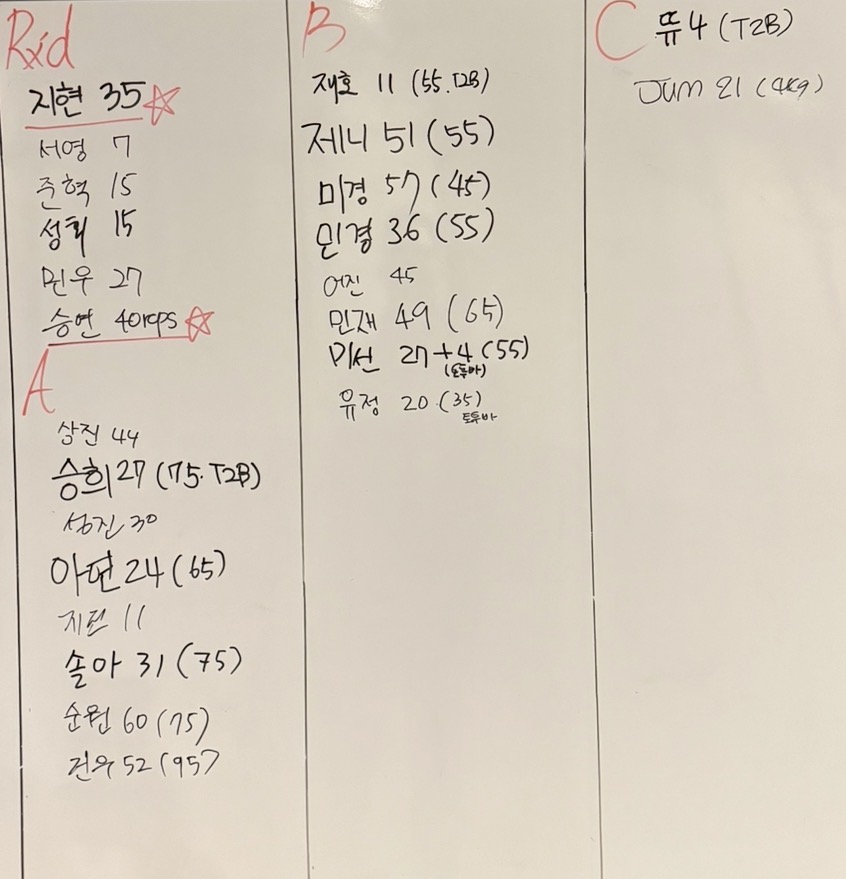 Rxd
지현 35
서영 7
준혁 15
성휘 15
민우 27
승연 40reps
A
상진 44
승희 27 (75. T2B)
성진 30
아련 24 (65)
지현 11
솔아 31 (75)
순원 60 (75)
건우 52 (95)
B
재호 11 (55. T2B)
제니 51 (55)
미경 57 (45)
민경 36 (55)
어진 45
민재 49 (65)
미선 27+4 (55)
(토투바)
유정 20 (35)
토투바
C
뜌 4 (T2B)
Jum 21 (9kg)